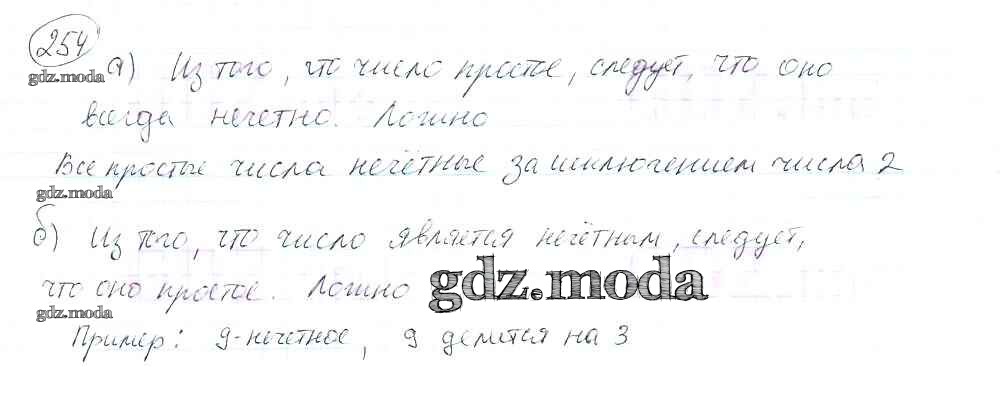 254
gdz.moda
а) Из того, что число простое, следует, что оно
всегда нечетно. Ложно
Все простые числа нечётные за исключением числа 2
gdz.moda
б) Из того, что число является нечётным, следует,
что оно простое. Ложно
gdz.moda
gdz.moda
Пример: 9-нечетное, 9 делится на 3